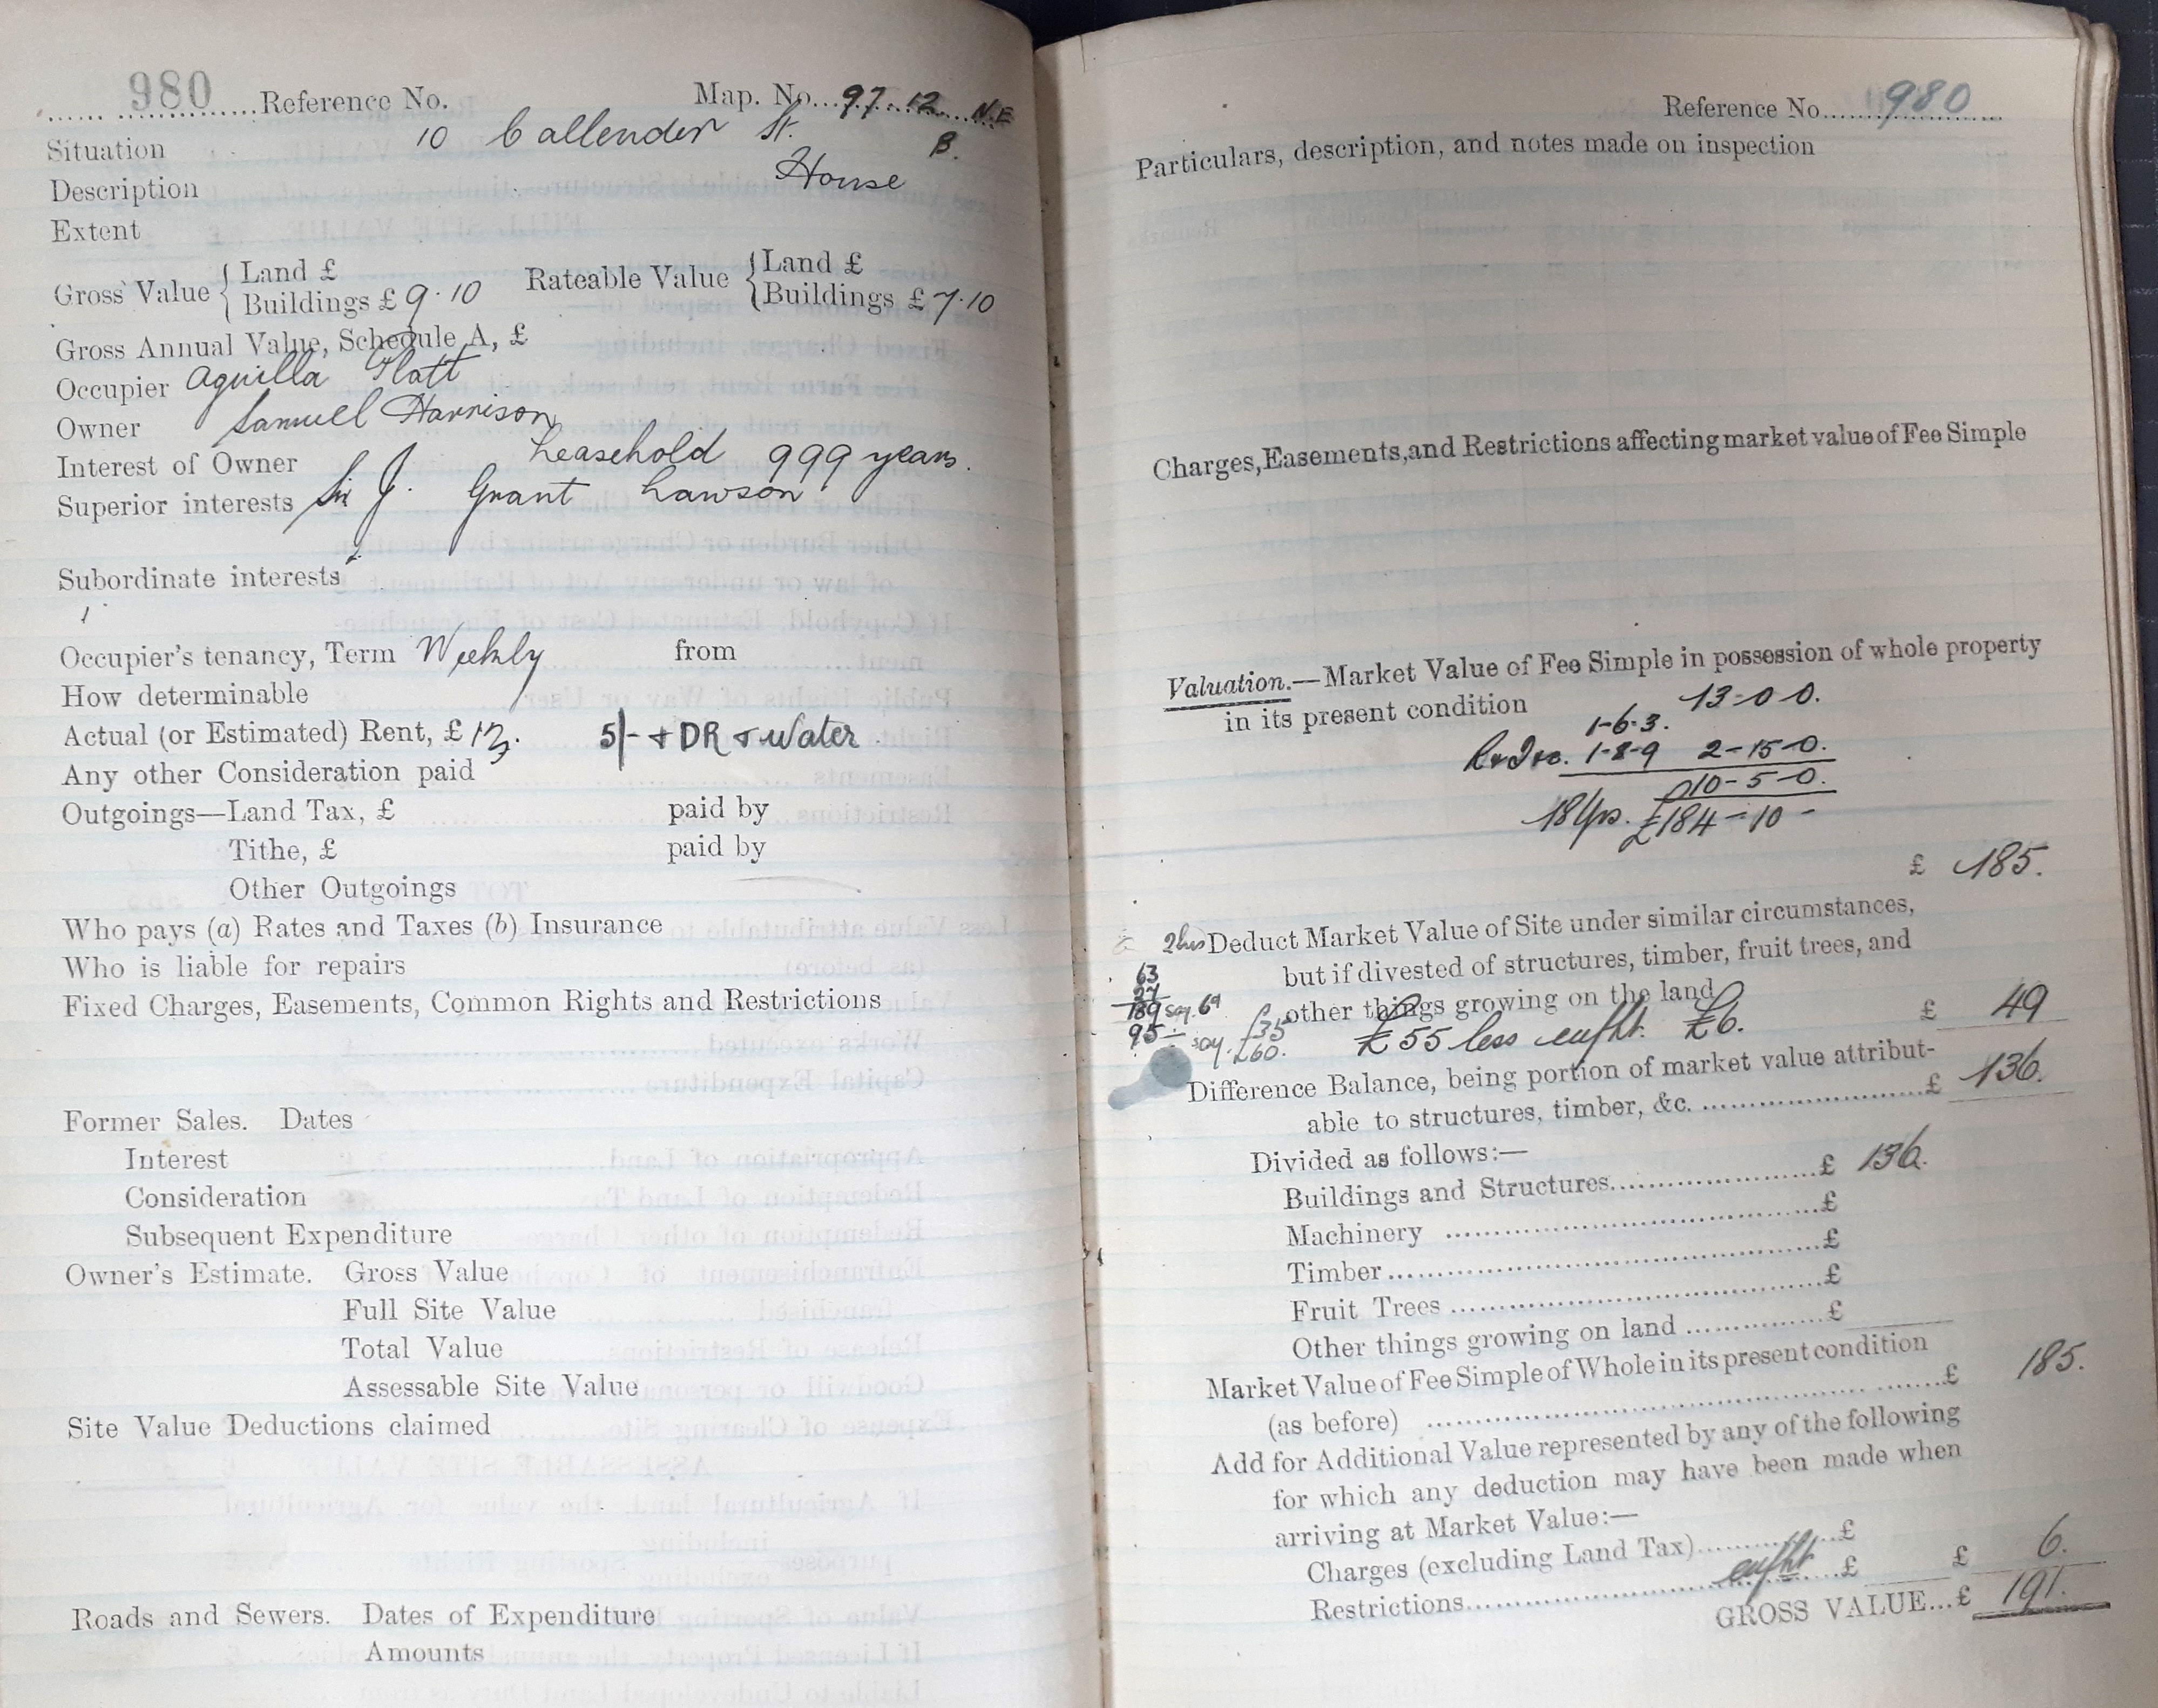 980 Reference No. Map. No. 97.12. N.E
Situation 10 Callender St. B.
Description House
Extent
Gross Value { Land £ Rateable Value { Land £
Buildings £ 9.10 Buildings £ 7.10
Gross Annual Value, Schedule A, £
Occupier Aquilla Platt
Owner Samuel Harrison
Interest of Owner Leasehold 999 years.
Superior interests Sir J. Grant Lawson
Subordinate interests
Occupier's tenancy, Term Weekly from
How determinable
Actual (or Estimated) Rent, £ 13. 5/- + DR & Water
Any other Consideration paid
Outgoings—Land Tax, £ paid by
Tithe, £ paid by
Other Outgoings
Who pays (a) Rates and Taxes (b) Insurance
Who is liable for repairs
Fixed Charges, Easements, Common Rights and Restrictions
Former Sales. Dates
Interest
Consideration
Subsequent Expenditure
Owner's Estimate. Gross Value
Full Site Value
Total Value
Assessable Site Value
Site Value Deductions claimed
Roads and Sewers. Dates of Expenditure
Amounts
Reference No. 980
Particulars, description, and notes made on inspection
Charges, Easements, and Restrictions affecting market value of Fee Simple
Valuation.—Market Value of Fee Simple in possession of whole property
in its present condition 13-0-0.
1-6-3.
1-8-9 2-15-0.
10-5-0.
18 Yrs. £184-10-
£ 185.
Deduct Market Value of Site under similar circumstances,
but if divested of structures, timber, fruit trees, and
63
other things growing on the land
27
189 say. 6d £35
£55 less £6. £ 49
95 say. £60.
Difference Balance, being portion of market value attribut-
able to structures, timber, &c. £ 136.
Divided as follows:—
Buildings and Structures £ 136.
Machinery £
Timber £
Fruit Trees £
Other things growing on land £
Market Value of Fee Simple of Whole in its present condition
(as before) £ 185.
Add for Additional Value represented by any of the following
for which any deduction may have been made when
arriving at Market Value:—
Charges (excluding Land Tax) £
Restrictions £ £ 6.
GROSS VALUE...£ 191.